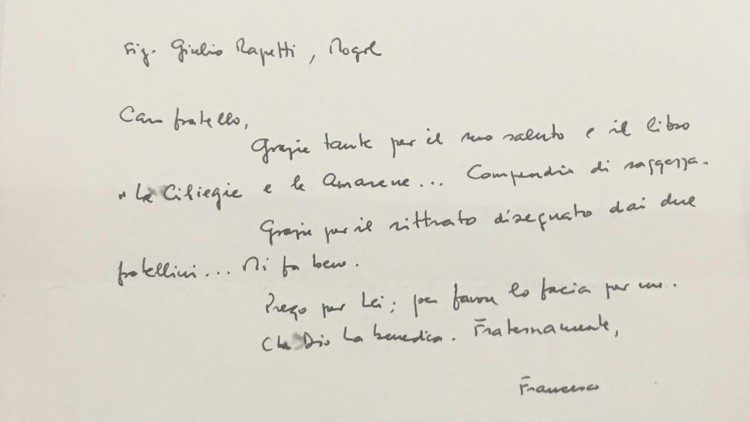 Sig. Giulio Rapetti, Mogol
Caro fratello,
Grazie tante per il suo saluto e il libro
"Le Ciliegie e le Amarene... Compendio di saggezza.
Grazie per il rittrato disegnato dai due
fratellini... Mi fa bene.
Prego per Lei; per favore lo faccia per me.
Che Dio La benedica. Fraternamente,
Francesco